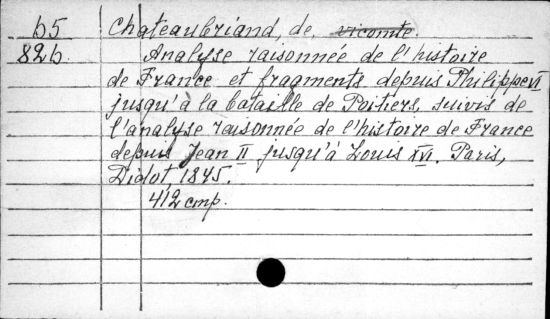 b5 Chateaubriand, de, vicomte.
82b. Analyse raisonnée de l'histoire
de France et fragments depuis Philippe VI
jusqu'à la bataille de Poitiers, suivis de
l'analyse raisonnée de l'histoire de France
depuis Jean II jusqu'à Louis XVI. Paris,
Didot, 1845.
412 cmp.